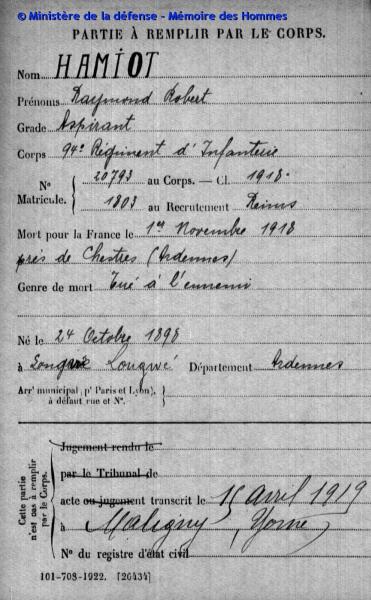 © Ministère de la défense - Mémoire des Hommes
PARTIE À REMPLIR PAR LE CORPS.
Nom HAMIOT
Prénoms Raymond Robert
Grade Aspirant
Corps 94e Régiment d'Infanterie
N° Matricule. { 20793 au Corps. — Cl. 1918.
1803 au Recrutement Reims
Mort pour la France le 1er Novembre 1918
près de Chestres (Ardennes)
Genre de mort Tué à l'ennemi
Né le 24 Octobre 1898
à Longwé Département Ardennes
Arrt municipal (pr Paris et Lyon), à défaut rue et N°. }
Cette partie n'est pas à remplir par le Corps.
Jugement rendu le
par le Tribunal de
acte ou jugement transcrit le 15 avril 1919
à Maligny, Yonne
N° du registre d'état civil
101-708-1922. [26434]